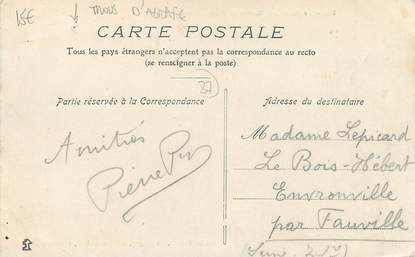 15€ TROUS D'AGRAFE
CARTE POSTALE
Tous les pays étrangers n'acceptent pas la correspondance au recto
(se renseigner à la poste)
37
Partie réservée à la Correspondance
Adresse du destinataire
Amitiés
Pierre
Madame Lepicard
Le Bois-Hébert
Envronville
par Fauville
(Seine Infre)